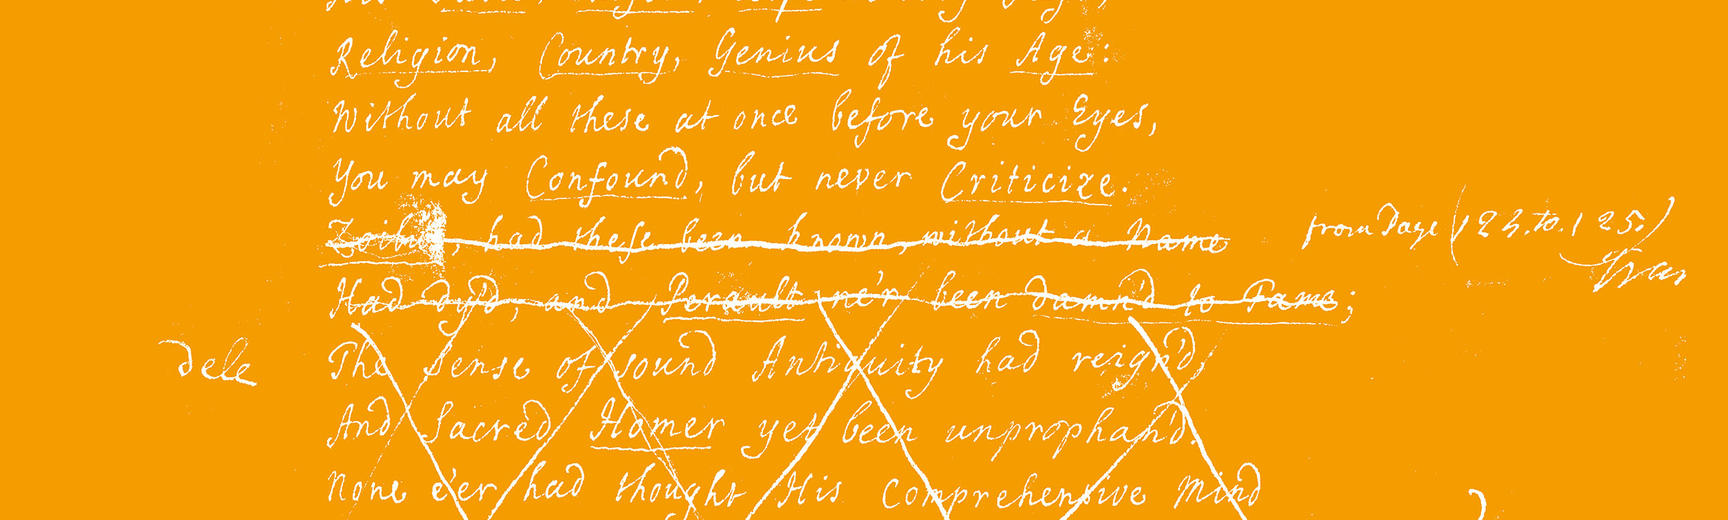 Religion, Country, Genius of his Age:
Without all these at once before your Eyes,
You may Confound, but never Criticize.
Zoilus, had these been known, without a Name
from Page (123. to. 125.)
Had dy'd, and Perault ne'r been Damn'd to Fame;
dele
The Sense of sound Antiquity had reign'd,
And Sacred Homer yet been unprophan'd.
None e'er had thought His Comprehensive Mind